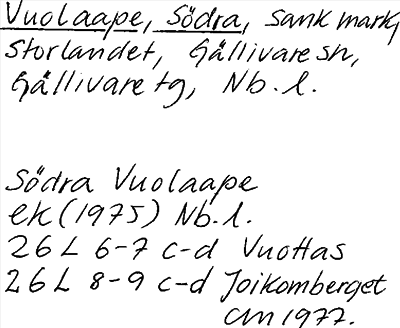 Vuolaape, Södra, sank mark,
Storlandet, Gällivare sn,
Gällivare tg, Nb. l.
Södra Vuolaape
ek (1975) Nb. l.
26 L 6-7 c-d Vuottas
26 L 8-9 c-d Joikomberget
CM 1977.